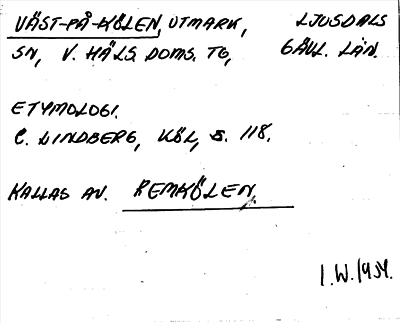 VÄST-PÅ-KÖLEN, UTMARK, LJUSDALS
SN, V. HÄLS. DOMS. TG, GÄVL. LÄN.
ETYMOLOGI.
C. LINDBERG, KÖL, S. 118.
KALLAS AV. REMKÖLEN.
I.W. 1934.